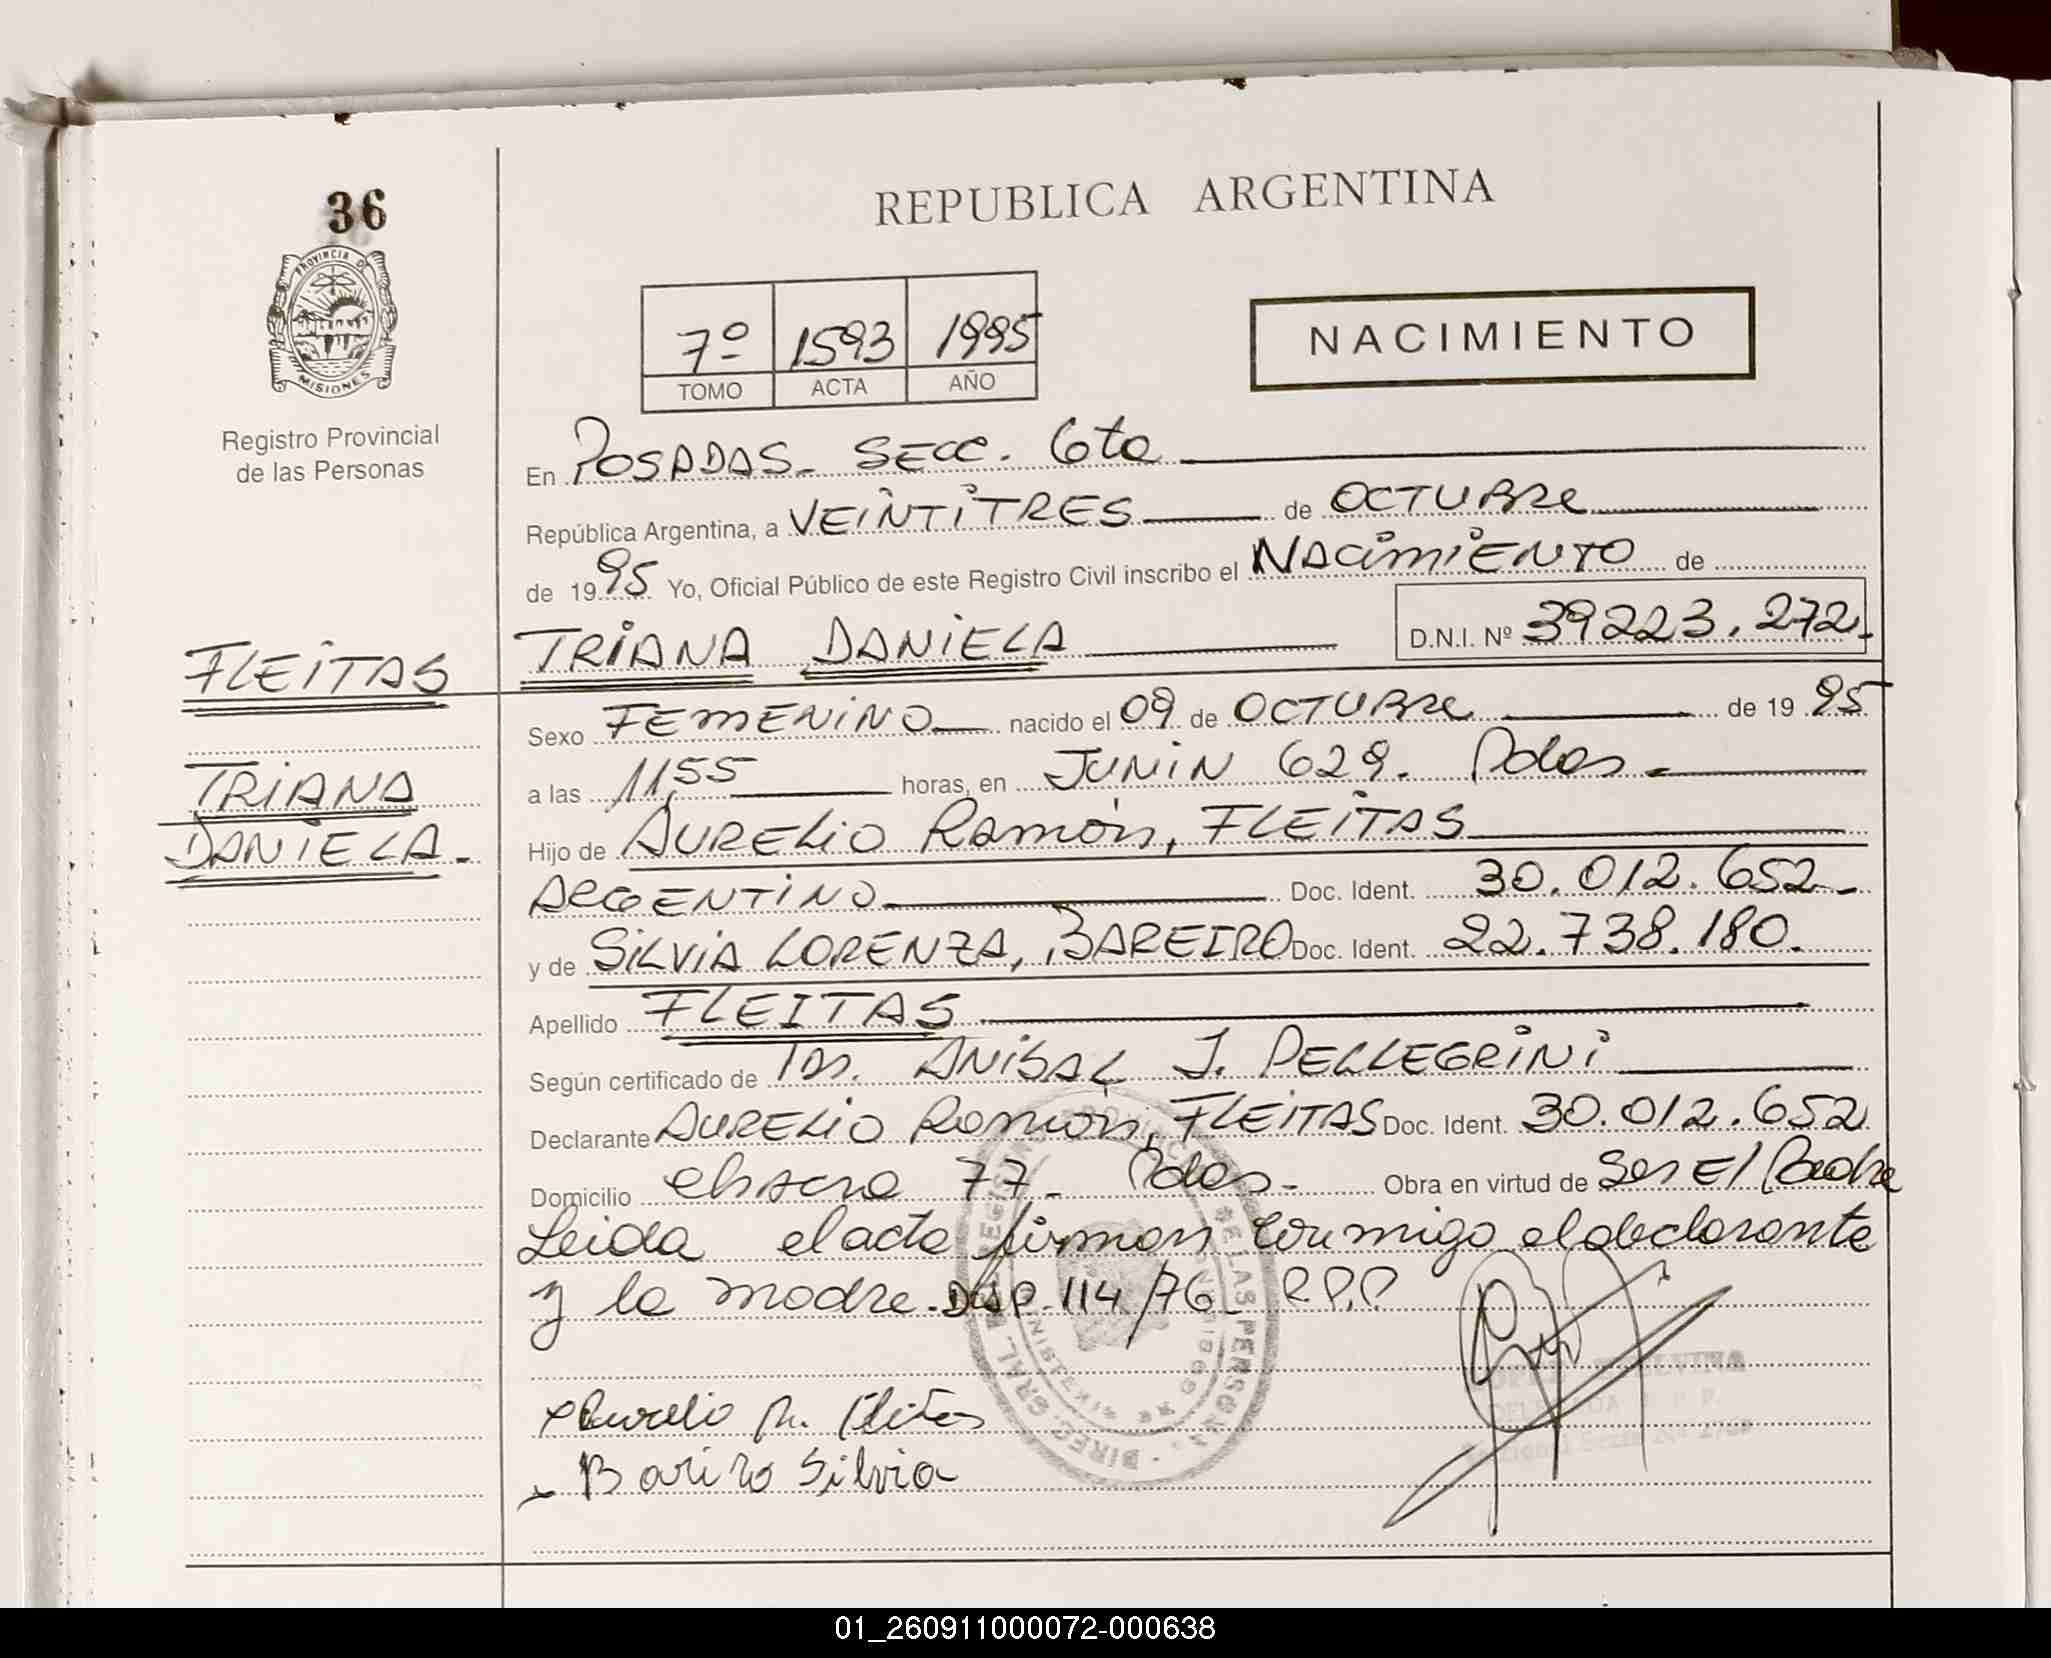 36
PROVINCIA DE
MISIONES
Registro Provincial
de las Personas
REPUBLICA ARGENTINA
7º 1593 1995
TOMO ACTA AÑO
NACIMIENTO
En POSADAS. SECC. 6ta
República Argentina, a VEINTITRES de OCTUBRE
de 1995 Yo, Oficial Público de este Registro Civil inscribo el NACIMIENTO de
FLEITAS TRIANA DANIELA D.N.I. Nº 39223.272.
Sexo FEMENINO nacido el 09 de OCTUBRE de 1995
TRIANA
DANIELA.
a las 11,55 horas, en JUNIN 629. Pdas.
Hijo de AURELIO Ramón, FLEITAS
ARGENTINO Doc. Ident. 30.012.652.
y de SILVIA LORENZA, BAREIRO Doc. Ident. 22.738.180.
Apellido FLEITAS
Según certificado de ANIBAL J. PELLEGRINI
Declarante AURELIO Ramón, FLEITAS Doc. Ident. 30.012.652
Domicilio chacra 77. Pdas. Obra en virtud de Ser El Padre
Leida el acta firman conmigo el declarante
y la madre. DISP. 114/76. R.P.P
Aurelio R. Fleitas
Bariro Silvia
DIREC. GRAL DE LAS PERSONAS
01_260911000072-000638